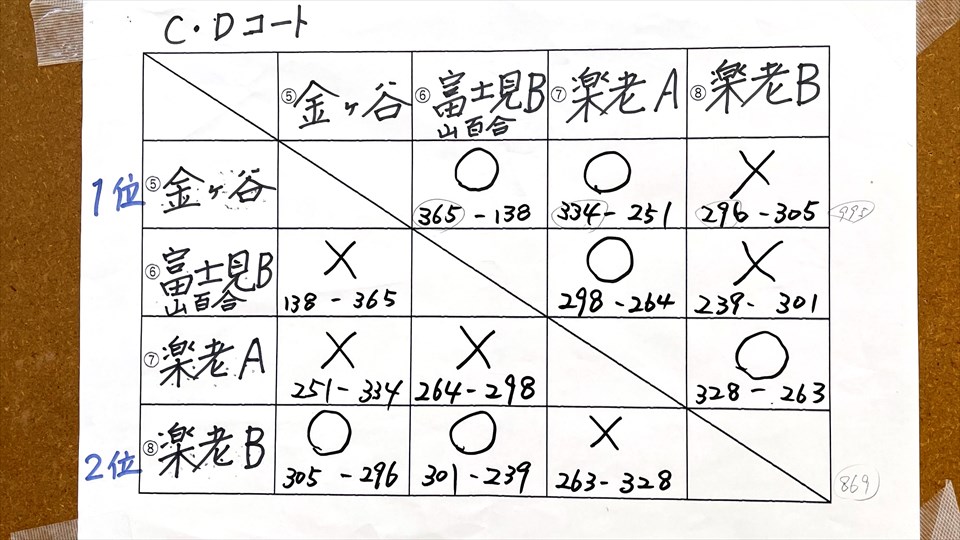 C・Dコート
⑤金ヶ谷 ⑥富士見B ⑦楽老A ⑧楽老B
山百合
1位 ⑤金ヶ谷 ○ ○ ×
365-138 334-251 296-305 995
⑥富士見B × ○ ×
山百合 138-365 298-264 239-301
⑦楽老A × × ○
251-334 264-298 328-263
2位 ⑧楽老B ○ ○ ×
305-296 301-239 263-328 869